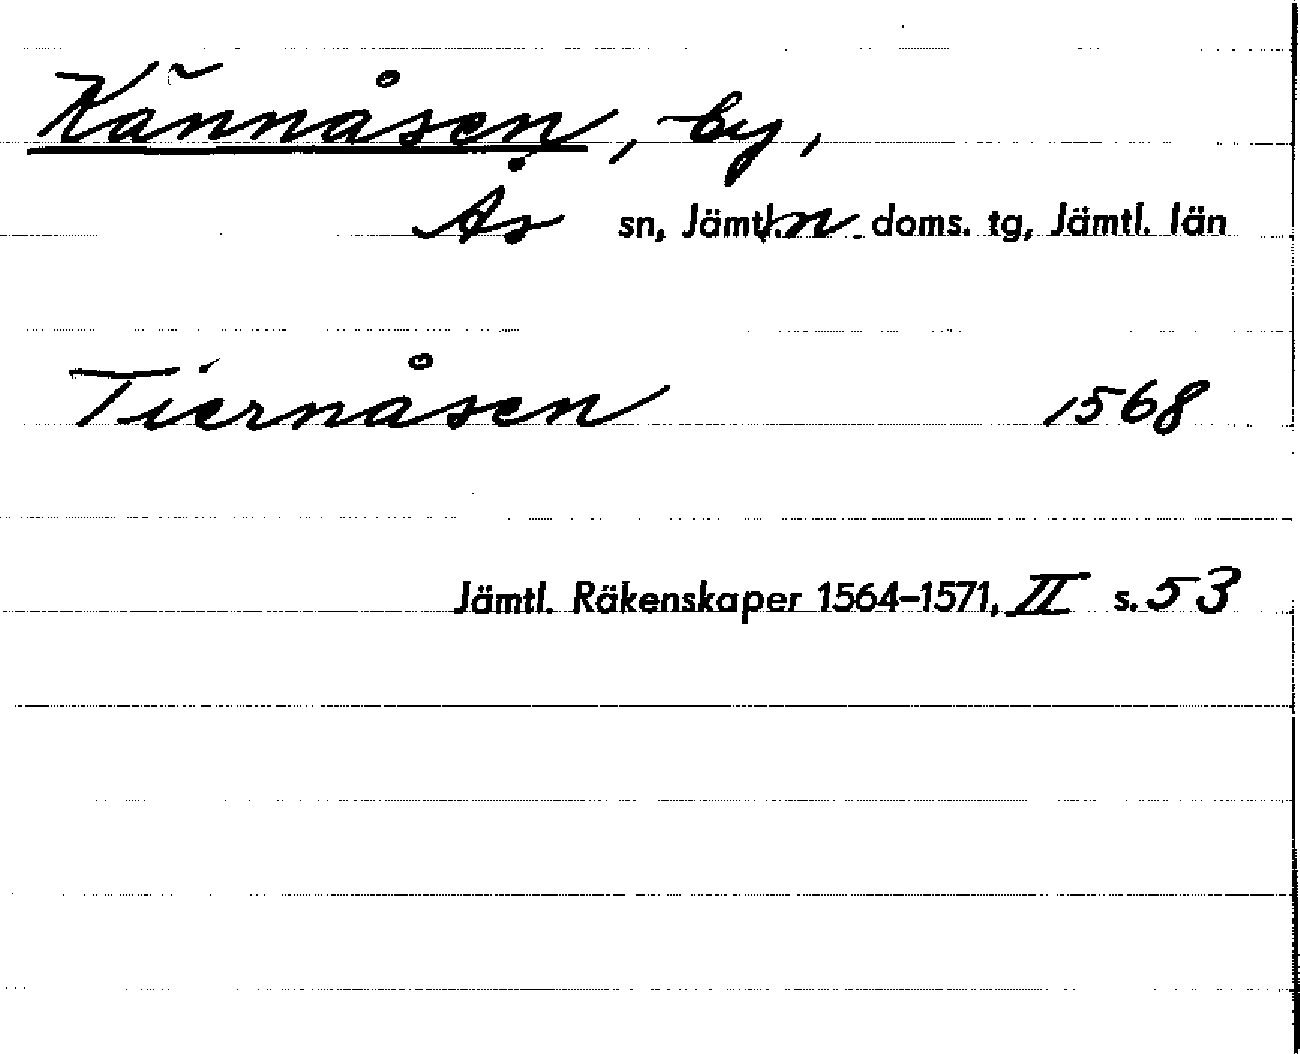 Kännåsen, by,
Ås sn, Jämtl. n. doms. tg, Jämtl. län
Tiernåsen 1568
Jämtl. Räkenskaper 1564-1571, II s. 53